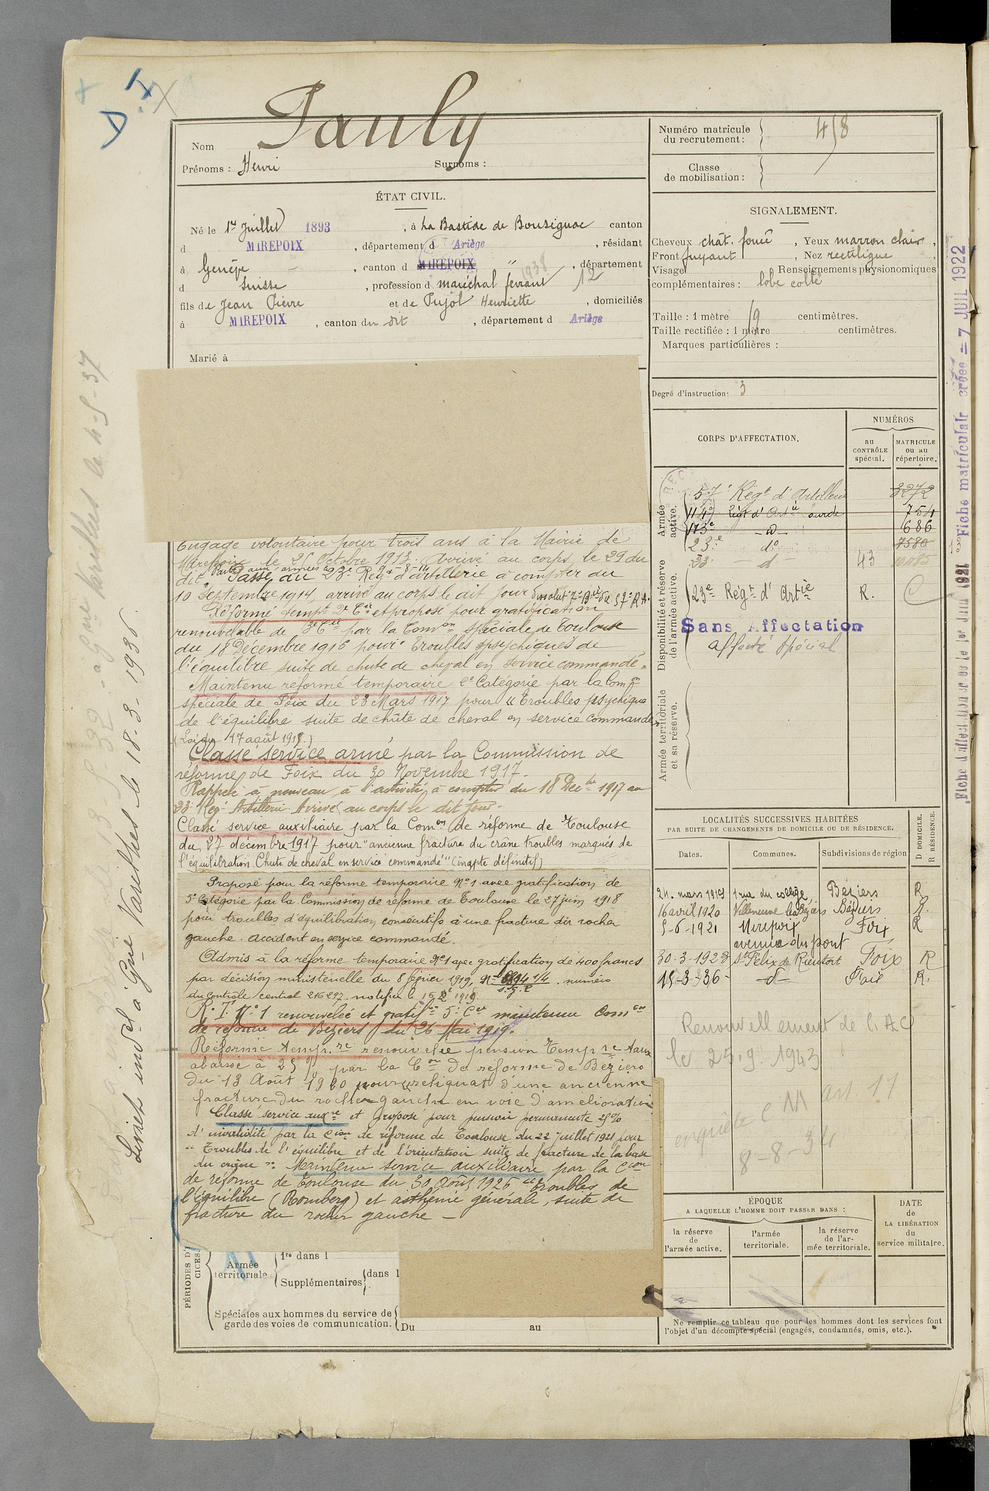 D I
Nom
Pauly
Prénoms : Henri
Surnoms :
ÉTAT CIVIL.
Né le 1er Juillet 1893, à La Bastide de Bousignac canton
d MIREPOIX, département d Ariège, résidant
à Genève, canton d MIREPOIX, département
d Suisse, profession d maréchal ferrant 12
fils de Jean Pierre et de Pujol Henriette, domiciliés
à MIREPOIX, canton du dit, département d Ariège
Marié à
Numéro matricule
du recrutement : 458
Classe
de mobilisation :
SIGNALEMENT.
Cheveux chât. foncé, Yeux marron clairs,
Front fuyant, Nez rectiligne,
Visage Renseignements physionomiques
complémentaires : lobe collé
Taille : 1 mètre centimètres.
Taille rectifiée : 1 mètre centimètres.
Marques particulières :
Degré d'instruction: 3
CORPS D'AFFECTATION.
NUMÉROS
au
CONTRÔLE
spécial.
MATRICULE
ou au
répertoire.
Armée
active.
57e Régt d'Artillerie 3272
114e Régt d'Artie lourde 754
113e do 686
23e do 7586
23e d 43
Disponibilité et réserve
de l'armée active.
23e Régt d'Artie R.
Sans Affectation
affecté spécial
Armée territoriale
et sa réserve.
Engagé volontaire pour trois ans à la Mairie de
Mirepoix le 25 Octobre 1913. Arrivé au corps le 29 du
dit
Passé au 23e Régt d'artillerie à compter du
10 Septembre 1914, arrivé au corps le dit jour
Réformé tempre 2e Cie et proposé pour gratification
renouvelable de par la Comon spéciale de Toulouse
du 18 Décembre 1916 pour troubles psychiques de
l'équilibre suite de chute de cheval en service commandé.
Maintenu réformé temporaire 2e Catégorie par la Comon
spéciale de Foix du 28 Mars 1917 pour "Troubles psychiques
de l'équilibre suite de chute de cheval en service commandé
(Loi du 17 août 1917.)
Classé service armé par la Commission de
réforme de Foix du 30 Novembre 1917.
Rappelé à nouveau à l'activité à compter du 18 Décbre 1917 au
23e Rég. Artillerie Arrivé au corps le dit jour.
Classé service auxiliaire par la Comon de réforme de Toulouse
du 27 décembre 1917 pour "ancienne fracture du crâne troubles marqués de
l'équilibration Chute de cheval en service commandé" (inapte définitif)
Proposé pour la réforme temporaire No 1 avec gratification de
5e Catégorie par la Commission de réforme de Toulouse le 27 juin 1918
pour troubles d'équilibration consécutifs à une fracture du rocher
gauche. accident en service commandé.
Admis à la réforme temporaire No 1 avec gratification de 400 francs
par décision ministérielle du 8 février 1919, numéro
du contrôle central 216297. notifiée le 15 2 1919
R. T. No 1 renouvelée et gratifon 5e Cie maintenue Comon
de réforme de Béziers du 26 Mai 1919.
Réformé tempre renouvelée pension tempre taux
abaissé à 25% par la Con de réforme de Béziers
du 13 Août 1920 pour reliquat d'une ancienne
fracture du rocher gauche en voie d'amélioration
Classé service auxre et proposé pour pension permanente 25%
d'invalidité par la Cion de réforme de Toulouse du 22 juillet 1921 pour
"Troubles de l'équilibre et de l'orientation suite de fracture de la base
du crâne". Maintenu service auxiliaire par la Cion
de réforme de Toulouse du 30 Août 1926 "Troubles de
l'équilibre (Romberg) et asthénie générale, suite de
fracture du rocher gauche
LOCALITÉS SUCCESSIVES HABITÉES
PAR SUITE DE CHANGEMENTS DE DOMICILE OU DE RÉSIDENCE.
D DOMICILE.
R RÉSIDENCE.
Dates.
Communes.
Subdivisions de région
24. mars 1919 1 rue du collège, Béziers R
16 avril 1920 Villeneuve les Béziers Béziers R.
5-6-1921 Mirepoix Foix R
avenue du pont
30-3-1928 St Félix de Rieutort Foix R
15-3-36 d Foix R.
Renouvellement de l'A.C
le 25.9.1943
enquête C M art 11
8-8-34
PÉRIODES D
CICES
Armée
territoriale
1re dans l
Supplémentaires dans l
Spéciales aux hommes du service de
garde des voies de communication.
Du au
ÉPOQUE
A LAQUELLE L'HOMME DOIT PASSER DANS :
la réserve
de
l'armée active.
l'armée
territoriale.
la réserve
de l'ar-
mée territoriale.
DATE
de
LA LIBÉRATION
du
service militaire.
Ne remplir ce tableau que pour les hommes dont les services font
l'objet d'un décompte spécial (engagés, condamnés, omis, etc.).
Varilhes le 18.3.1936.
Fiche matriculaire créée le 7 JUIL 1922